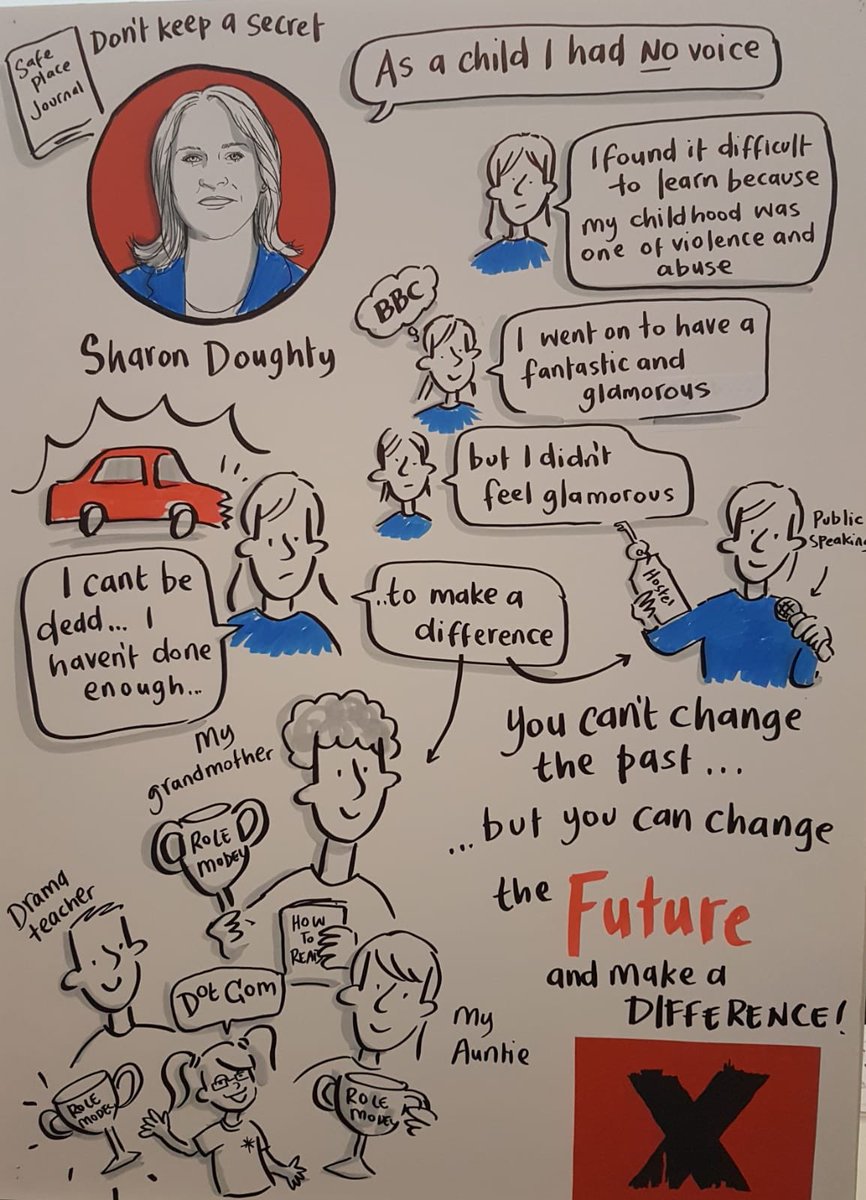 Safe
Place
Journal
Don't keep a secret
As a child I had NO voice
I found it difficult
to learn because
my childhood was
one of violence and
abuse
Sharon Doughty
BBC
I went on to have a
fantastic and
glamorous
but I didn't
feel glamorous
Hostel
Public
Speaking
I cant be
dedd... I
haven't done
enough...
...to make a
difference
You can't change
the past...
...but you can change
the Future
and make a
DIFFERENCE!
My
grandmother
ROLE
MODEL
HOW
TO
READ
Drama
teacher
Dot Com
My
Auntie
ROLE
MODEL
ROLE
MODEL
X